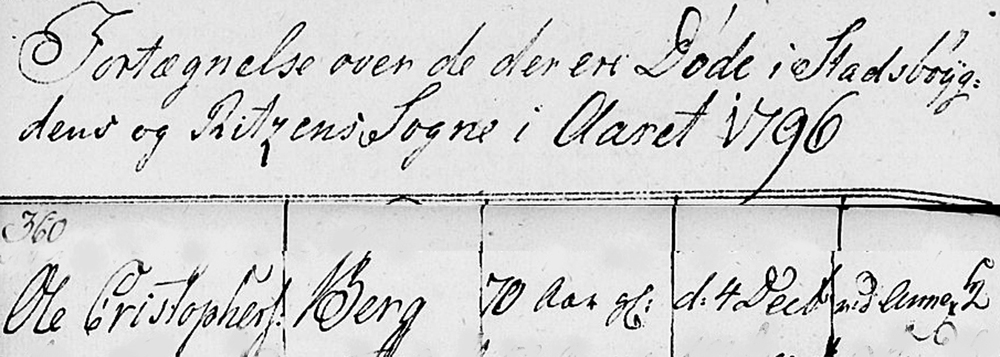 Fortægnelse over de der ere Døde i Stadsbøyg-
dens og Ritzens Sogne i Aaret 1796
360
Ole Cristophers: Berg 70 Aar gl: d: 4 Dec